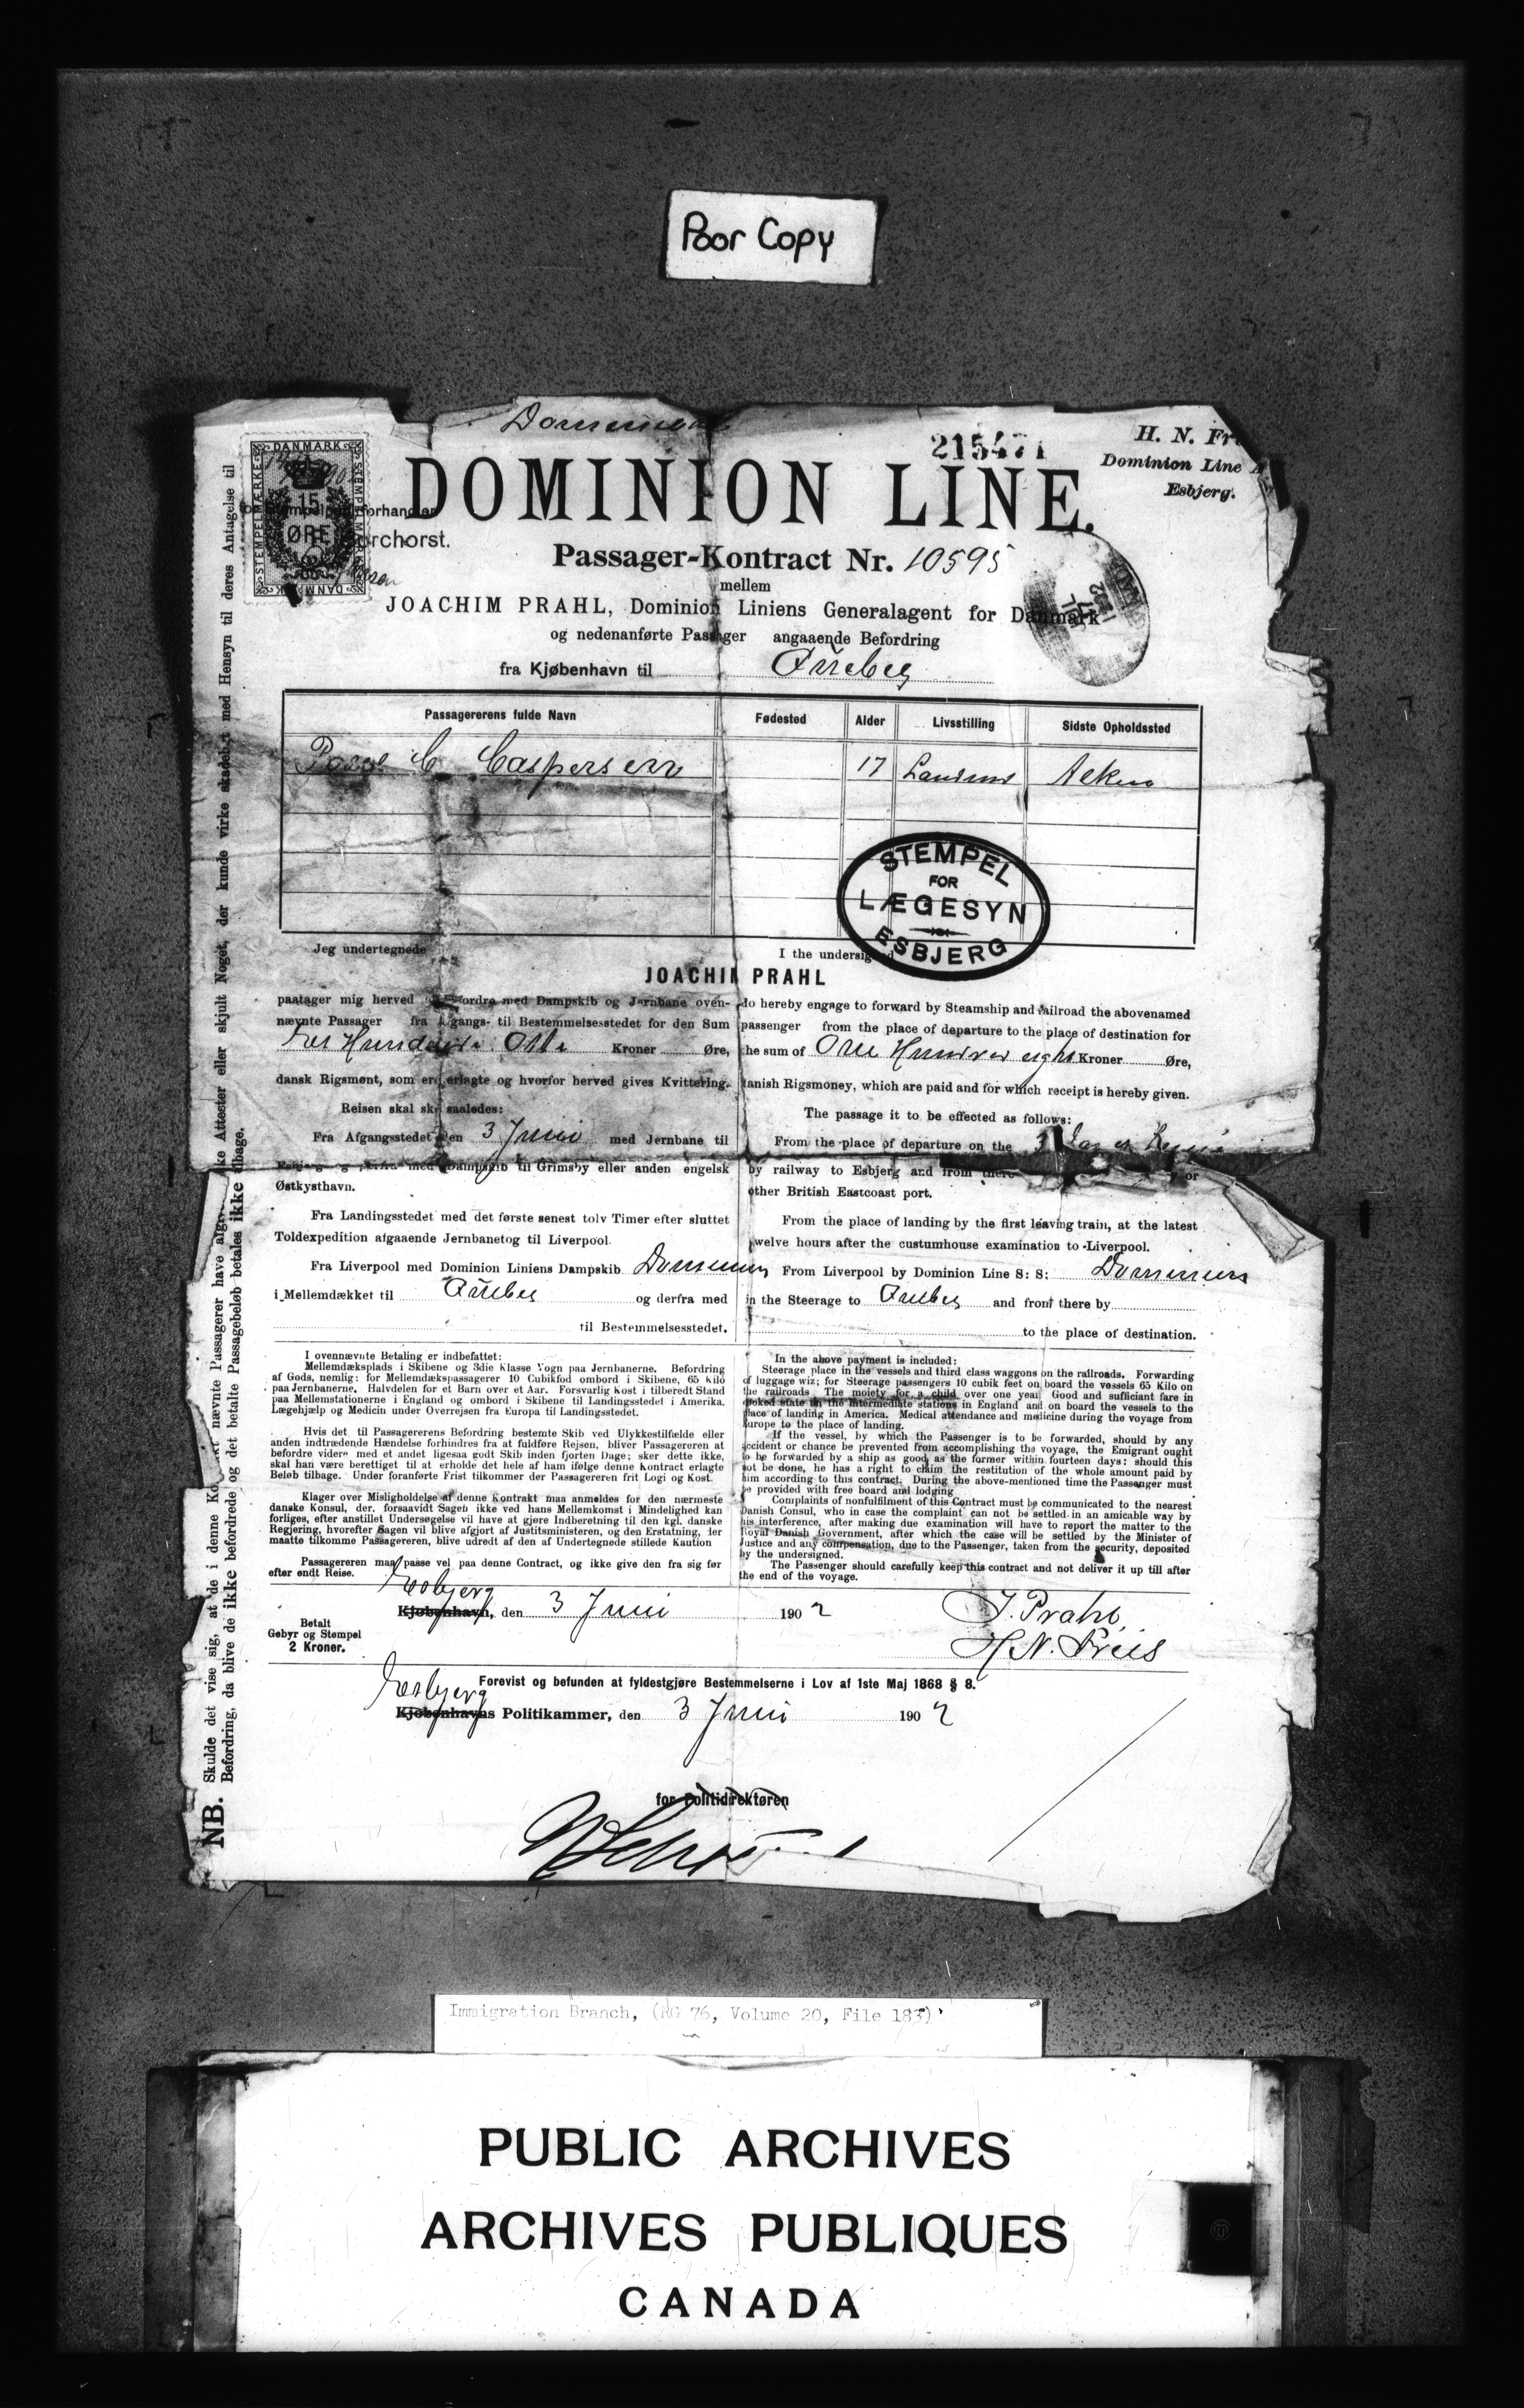 Poor Copy
215471
H. N. Fr
Dominion Line A
Esbjerg.
DANMARK
STEMPELMÆRKE
15
ØRE
DOMINION LINE.
Passager-Kontract Nr. 10595
mellem
JOACHIM PRAHL, Dominion Liniens Generalagent for Danmark
og nedenanførte Passager angaaende Befordring
fra Kjøbenhavn til Quebec
Passagererens fulde Navn Fødested Alder Livsstilling Sidste Opholdssted
C Caspersen 17
STEMPEL
FOR
LÆGESYN
ESBJERG
Jeg undertegnede I the undersigned
JOACHIM PRAHL
paatager mig herved at befordre med Dampskib og Jernbane oven-
nævnte Passager fra Afgangs- til Bestemmelsesstedet for den Sum
Et Hundrede Otte Kroner Øre,
dansk Rigsmønt, som er erlagte og hvorfor herved gives Kvittering.
Reisen skal ske saaledes:
Fra Afgangsstedet den 3 Juni med Jernbane til
Esbjerg og derfra med Dampskib til Grimsby eller anden engelsk
Østkysthavn.
Fra Landingsstedet med det første senest tolv Timer efter sluttet
Toldexpedition afgaaende Jernbanetog til Liverpool.
Fra Liverpool med Dominion Liniens Dampskib Dominion
i Mellemdækket til Quebec og derfra med
til Bestemmelsesstedet.
do hereby engage to forward by Steamship and railroad the abovenamed
passenger from the place of departure to the place of destination for
the sum of One Hundred eight Kroner Øre,
danish Rigsmoney, which are paid and for which receipt is hereby given.
The passage it to be effected as follows:
From the place of departure on the 3
by railway to Esbjerg and from there or
other British Eastcoast port.
From the place of landing by the first leaving train, at the latest
twelve hours after the custumhouse examination to Liverpool.
From Liverpool by Dominion Line S: S: Dominion
in the Steerage to Quebec and from there by
to the place of destination.
I ovennævnte Betaling er indbefattet:
Mellemdæksplads i Skibene og 3die Klasse Vogn paa Jernbanerne. Befordring
af Gods, nemlig: for Mellemdækspassagerer 10 Cubikfod ombord i Skibene, 65 Kilo
paa Jernbanerne. Halvdelen for et Barn over et Aar. Forsvarlig Kost i tilberedt Stand
paa Mellemstationerne i England og ombord i Skibene til Landingsstedet i Amerika.
Lægehjælp og Medicin under Overrejsen fra Europa til Landingsstedet.
Hvis det til Passagererens Befordring bestemte Skib ved Ulykkestilfælde eller
anden indtrædende Hændelse forhindres fra at fuldføre Rejsen, bliver Passagereren at
befordre videre med et andet ligesaa godt Skib inden fjorten Dage; sker dette ikke,
skal han være berettiget til at erholde det hele af ham ifølge denne Kontract erlagte
Beløb tilbage. Under foranførte Frist tilkommer der Passagereren frit Logi og Kost.
Klager over Misligholdelse af denne Kontrakt maa anmeldes for den nærmeste
danske Konsul, der, forsaavidt Sagen ikke ved hans Mellemkomst i Mindelighed kan
forliges, efter anstillet Undersøgelse vil have at gjøre Indberetning til den kgl. danske
Regjering, hvorefter Sagen vil blive afgjort af Justitsministeren, og den Erstatning, der
maatte tilkomme Passagereren, blive udredt af den af Undertegnede stillede Kaution
Passagereren maa passe vel paa denne Contract, og ikke give den fra sig før
efter endt Reise.
In the above payment is included:
Steerage place in the vessels and third class waggons on the railroads. Forwarding
of luggage wiz; for Steerage passengers 10 cubik feet on board the vessels 65 Kilo on
the railroads The moiety for a child over one year Good and sufficiant fare in
cooked state on the Intermediate stations in England and on board the vessels to the
place of landing in America. Medical attendance and medicine during the voyage from
Europe to the place of landing.
If the vessel, by which the Passenger is to be forwarded, should by any
accident or chance be prevented from accomplishing the voyage, the Emigrant ought
to be forwarded by a ship as good as the former within fourteen days: should this
not be done, he has a right to claim the restitution of the whole amount paid by
him according to this contract. During the above-mentioned time the Passenger must
be provided with free board and lodging
Complaints of nonfulfilment of this Contract must be communicated to the nearest
Danish Consul, who in case the complaint can not be settled in an amicable way by
his interference, after making due examination will have to report the matter to the
Royal Danish Government, after which the case will be settled by the Minister of
Justice and any compensation, due to the Passenger, taken from the security, deposited
by the undersigned.
The Passenger should carefully keep this contract and not deliver it up till after
the end of the voyage.
Esbjerg
Kjøbenhavn, den 3 Juni 1902
Betalt
Gebyr og Stempel
2 Kroner.
J. Prahl
H. N. Friis
Forevist og befunden at fyldestgjøre Bestemmelserne i Lov af 1ste Maj 1868 § 8.
Esbjerg
Kjøbenhavns Politikammer, den 3 Juni 1902
for Politidirektøren
NB. Skulde det vise sig, at de i denne nævnte Passagerer have Attester eller skjult Noget, der kunde virke skadeligt med Hensyn til deres Antagelse til
Befordring, da blive de ikke befordrede og det betalte Passagebeløb betales ikke tilbage.
Immigration Branch, (RG 76, Volume 20, File 183)
PUBLIC ARCHIVES
ARCHIVES PUBLIQUES
CANADA